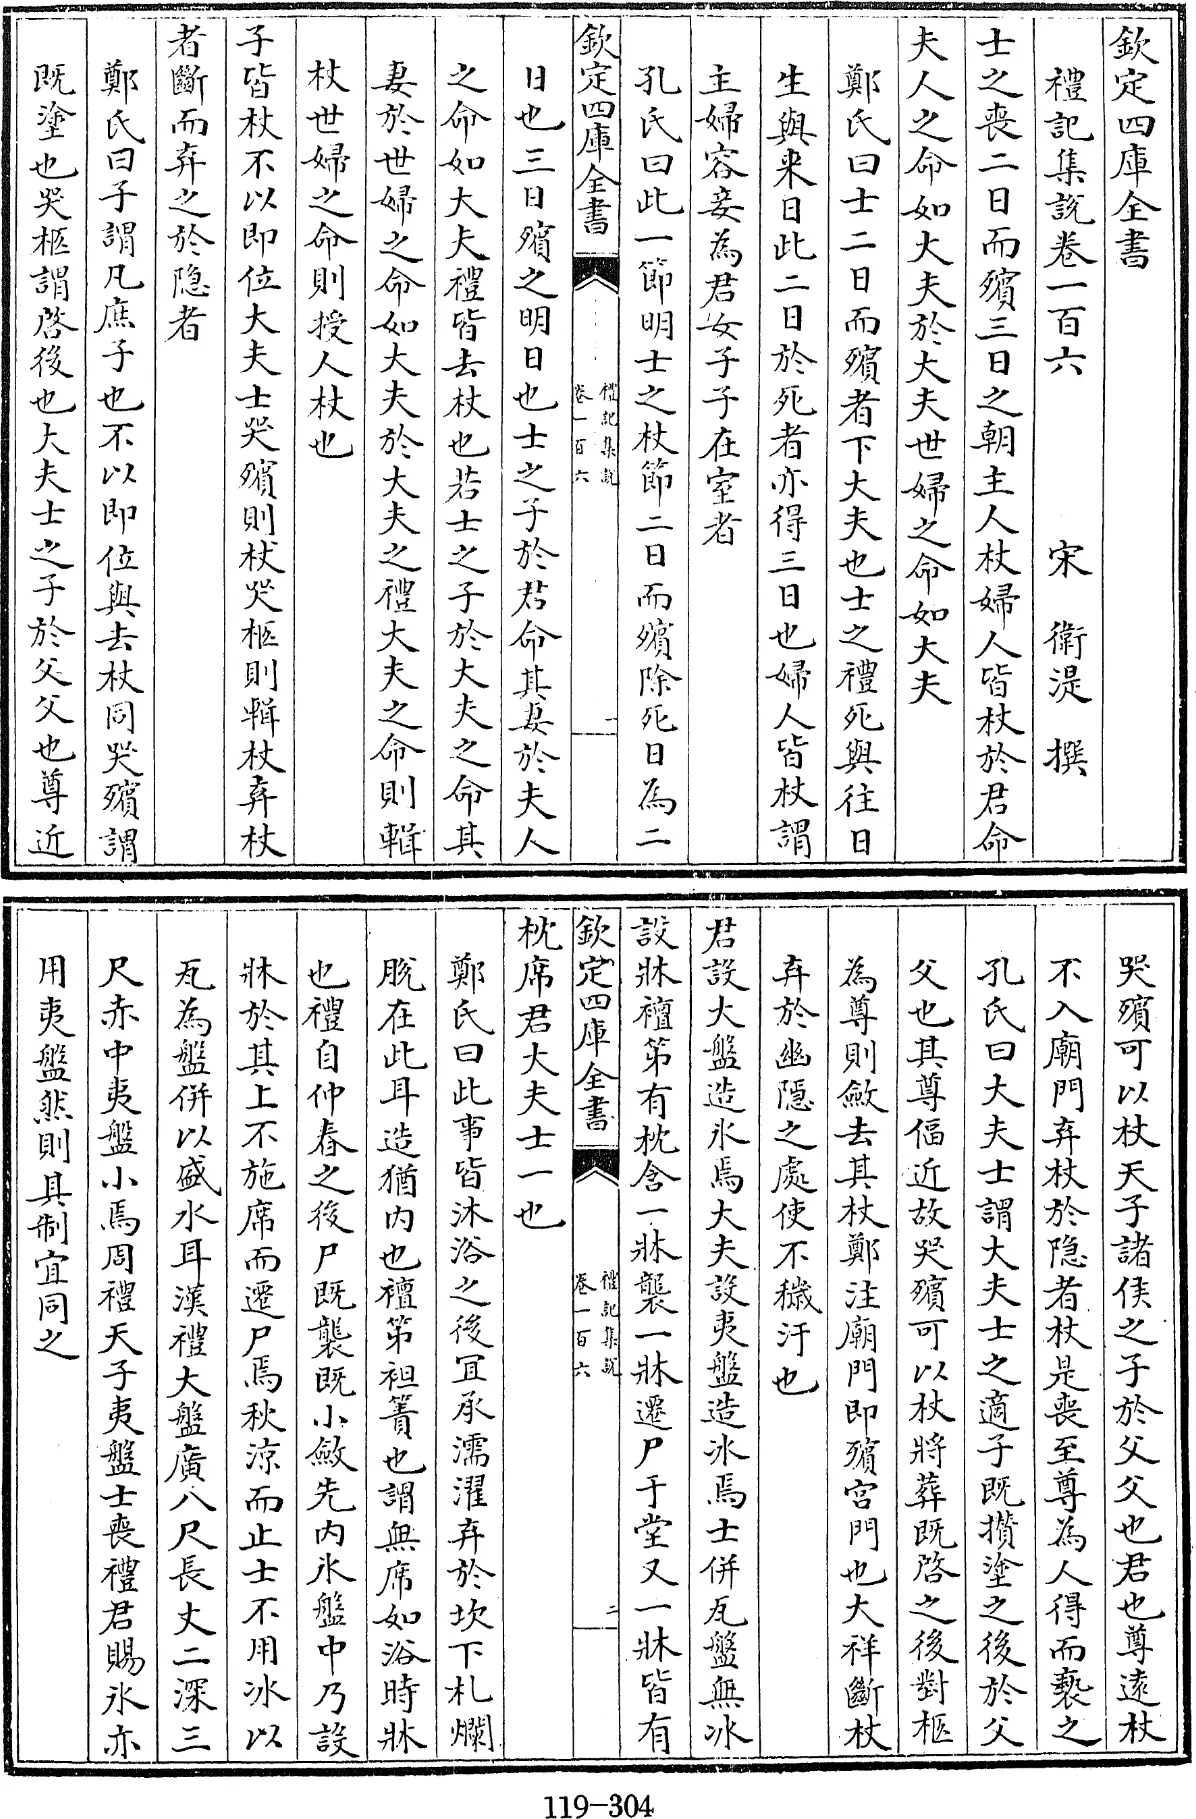 欽定四庫全書
禮記集說卷一百六
宋 衛湜 撰
士之喪二日而殯三日之朝主人杖婦人皆杖於君命
夫人之命如大夫於大夫世婦之命如大夫
鄭氏曰士二日而殯者下大夫也士之禮死與往日
生與来日此二日於死者亦得三日也婦人皆杖謂
主婦容妾為君女子子在室者
孔氏曰此一節明士之杖節二日而殯除死日為二
欽定四庫全書
禮記集說
卷一百六
一
日也三日殯之明日也士之子於君命其妻於夫人
之命如大夫禮皆去杖也若士之子於大夫之命其
妻於世婦之命如大夫於大夫之禮大夫之命則輯
杖世婦之命則授人杖也
子皆杖不以即位大夫士哭殯則杖哭柩則輯杖弃杖
者斷而弃之於隱者
鄭氏曰子謂凡庶子也不以即位與去杖同哭殯謂
既塗也哭柩謂啓後也大夫士之子於父父也尊近
哭殯可以杖天子諸侯之子於父父也君也尊遠杖
不入廟門弃杖於隱者杖是喪至尊為人得而褻之
孔氏曰大夫士謂大夫士之適子既攢塗之後於父
父也其尊偪近故哭殯可以杖將葬既啓之後對柩
為尊則斂去其杖鄭注廟門即殯宮門也大祥斷杖
弃於幽隱之處使不穢汙也
君設大盤造氷焉大夫設夷盤造冰焉士併瓦盤無冰
設牀襢第有枕含一牀襲一牀遷尸于堂又一牀皆有
欽定四庫全書
禮記集說
卷一百六
二
枕席君大夫士一也
鄭氏曰此事皆沐浴之後宜承濡濯弃於坎下札爛
脫在此耳造猶内也襢第袒簀也謂無席如浴時牀
也禮自仲春之後尸既襲既小斂先内氷盤中乃設
牀於其上不施席而遷尸焉秋涼而止士不用冰以
瓦為盤併以盛水耳漢禮大盤廣八尺長丈二深三
尺赤中夷盤小焉周禮天子夷盤士喪禮君賜氷亦
用夷盤然則其制宜同之
119-304